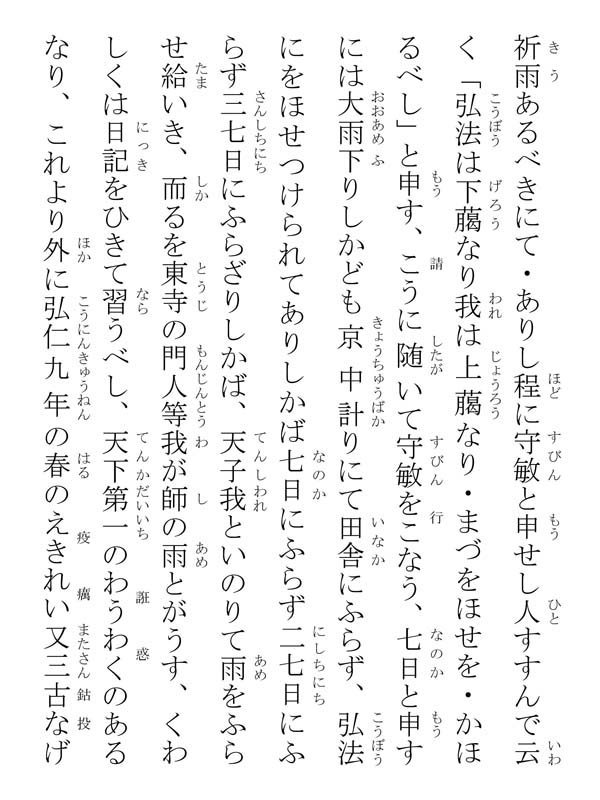 祈雨あるべきにて・ありし程に守敏と申せし人すすんで云
く「弘法は下﨟なり我は上﨟なり・まづをほせを・かほ
るべし」と申す、こうに随いて守敏をこなう、七日と申す
には大雨下りしかども京中計りにて田舎にふらず、弘法
にをほせつけられてありしかば七日にふらず二七日にふ
らず三七日にふらざりしかば、天子我といのりて雨をふら
せ給いき、而るを東寺の門人等我が師の雨とがうす、くわ
しくは日記をひきて習うべし、天下第一のわうわくのある
なり、これより外に弘仁九年の春のえきれい又三古なげ